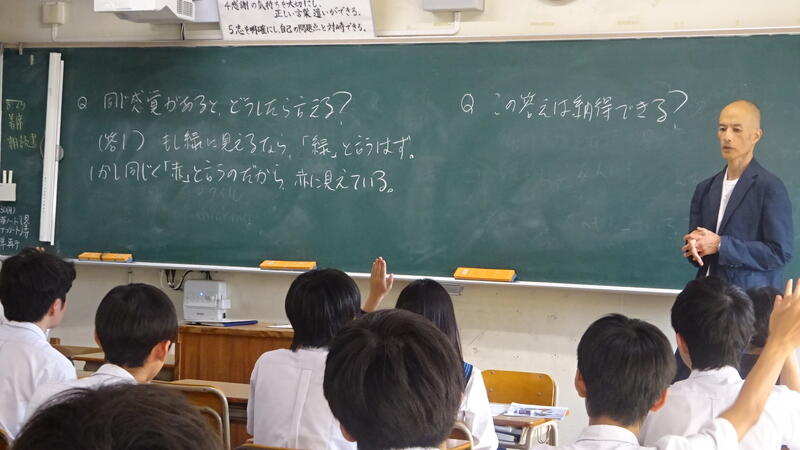 4.感謝の気持ちを大切にし、
正しい言葉遣いができる。
5.志を明確にし、自己の問題点と対峙できる。
Q 同じ感覚があると、どうしたら言える?
(答1) もし緑に見えるなら、「緑」と言うはず。
しかし同じく「赤」と言うのだから、赤に見えている。
Q この答えは納得できる?